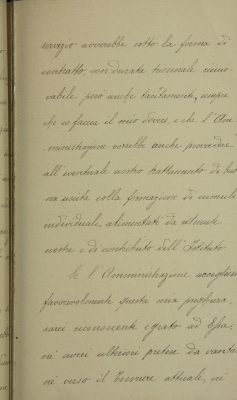 servizio avverrebbe sotto la forma di
contratto, con durata triennale rinno-
vabile però anche tacitamente, sempre
che io faccia il mio dovere, e che l'Am-
ministrazione vorrebbe anche provvedere
all'eventuale nostro trattamento di buo-
na uscita colla formazione di cumulo
individuale, alimentato da ritenute
nostre e di contributo dell'Istituto.
Se l'Amministrazione accogliesse
favorevolmente questa mia preghiera,
sarei riconoscente e grato ad Essa,
né avrei ulteriori pretese da vantare
né verso il Tesoriere attuale, né